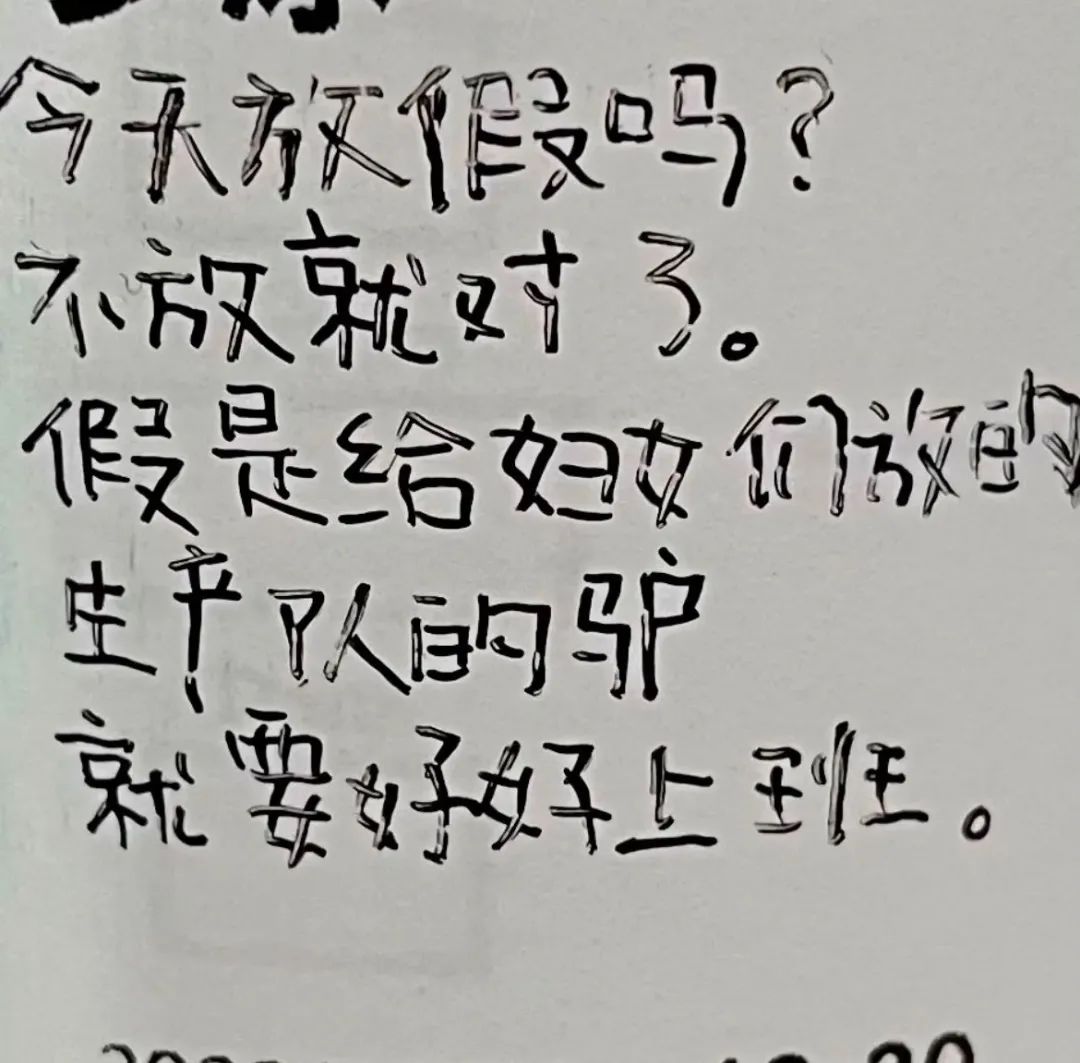 今天放假吗？
不放就对了。
假是给妇女们放的
生产队的驴
就要好好上班。